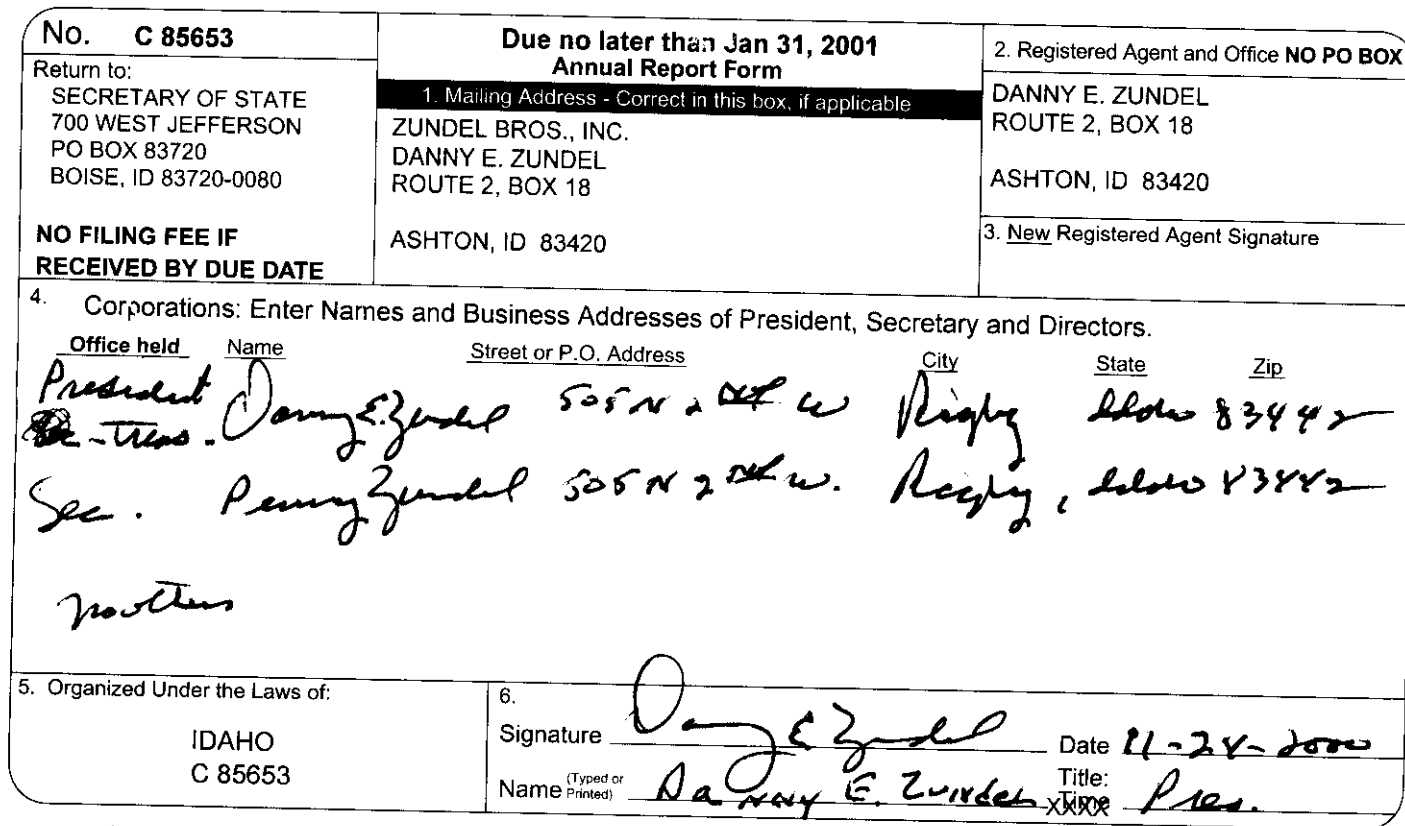 No. C 85653
Return to:
SECRETARY OF STATE
700 WEST JEFFERSON
PO BOX 83720
BOISE, ID 83720-0080
NO FILING FEE IF
RECEIVED BY DUE DATE
Due no later than Jan 31, 2001
Annual Report Form
1. Mailing Address - Correct in this box, if applicable
ZUNDEL BROS., INC.
DANNY E. ZUNDEL
ROUTE 2, BOX 18
ASHTON, ID 83420
2. Registered Agent and Office NO PO BOX
DANNY E. ZUNDEL
ROUTE 2, BOX 18
ASHTON, ID 83420
3. New Registered Agent Signature
4. Corporations: Enter Names and Business Addresses of President, Secretary and Directors.
Office held Name Street or P.O. Address City State Zip
President Danny E. Zundel 505 N 2 W Rigby Idaho 83442
-Treas.
Sec. Penny Zundel 505 N 2 W. Rigby, Idaho 83442
no others
5. Organized Under the Laws of:
IDAHO
C 85653
6.
Signature Danny E Zundel Date 11-24-2000
Name (Typed or Printed) Danny E. Zundel Title: Pres.